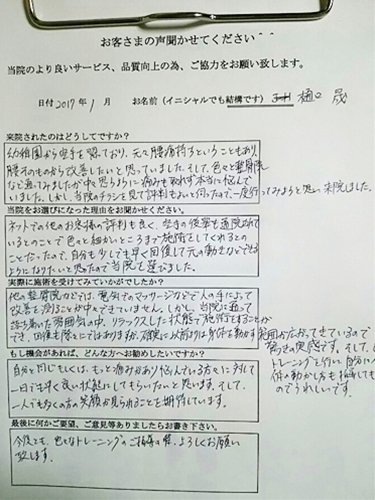 お客さまの声聞かせてください＾＾
当院のより良いサービス、品質向上の為、ご協力をお願い致します。
日付 2017年 1月 お名前（イニシャルでも結構です） 樋口 晟
来院されたのはどうしてですか？
幼稚園から空手を習っており、元々腰痛持ちということもあり、
腰そのものから改善したいと思っていました。そして、色々と整骨院
など通ってみましたが中々思うように痛みも取れず本当に悩んで
いました。しかし、当院のチラシを見て評判もよいと伺ったので一度行ってみようと思い、来院しました。
当院をお選びになった理由をお聞かせください。
ネットでの他のお客様の評判も良く、空手の後輩も通院されて
いるとのことで色々と細かいところまで施術をしてくれるとの
ことだったので、自分も少しでも早く回復して元の動きなどできる
ようになりたいと思ったので当院を選びました。
実際に施術を受けてみていかがでしたか？
他の整骨院などでは、電気でのマッサージなどで人の手によって
改善を測ることが中々できていません。しかし、当院に通って
落ち着いた雰囲気の中、リラックスした状態で施術をすることが
でき、回復も除々にではありますが、確実に以前よりは身体を動かす範囲が広がってきているので
驚きの実感です。そして、
トレーニングも行い、自分に
体の動かし方も指導しても
のでうれしいです。
もし機会があれば、どんな方へお勧めしたいですか？
自分と同じもしくは、もっと痛みがあり悩んでいる方々に対して
一日でも早く良い状態にしてもらいたいと思います。そして、
一人でも多くの方の笑顔が見られることを期待しています。
最後に何かご要望、ご意見等ありましたらお書き下さい。
今後とも、色々なトレーニングのご指導の程、よろしくお願い
致します。